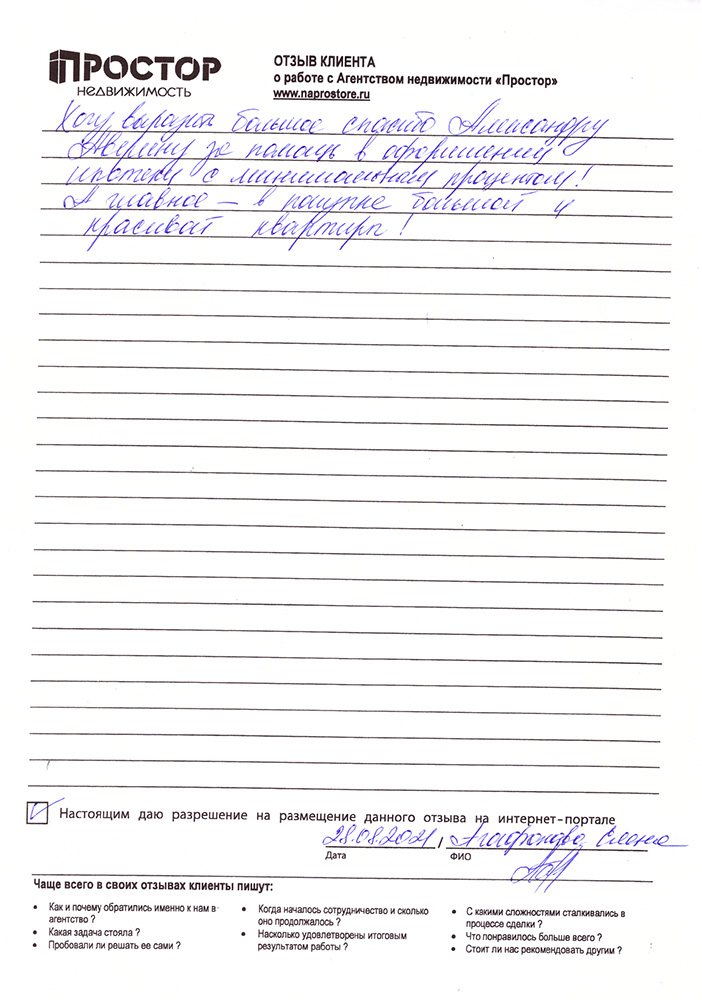 ПРОСТОР
НЕДВИЖИМОСТЬ
ОТЗЫВ КЛИЕНТА
о работе с Агентством недвижимости «Простор»
www.naprostore.ru
Хочу выразить большое спасибо Александру
Аверину за помощь в оформлении
ипотеки с минимальным процентом!
А главное – в покупке большой и
красивой квартиры!
Настоящим даю разрешение на размещение данного отзыва на интернет-портале
28.08.2021 / Агафонова Елена
Дата ФИО
Чаще всего в своих отзывах клиенты пишут:
• Как и почему обратились именно к нам в
агентство ?
• Какая задача стояла ?
• Пробовали ли решать ее сами ?
• Когда началось сотрудничество и сколько
оно продолжалось ?
• Насколько удовлетворены итоговым
результатом работы ?
• С какими сложностями сталкивались в
процессе сделки ?
• Что понравилось больше всего ?
• Стоит ли нас рекомендовать другим ?